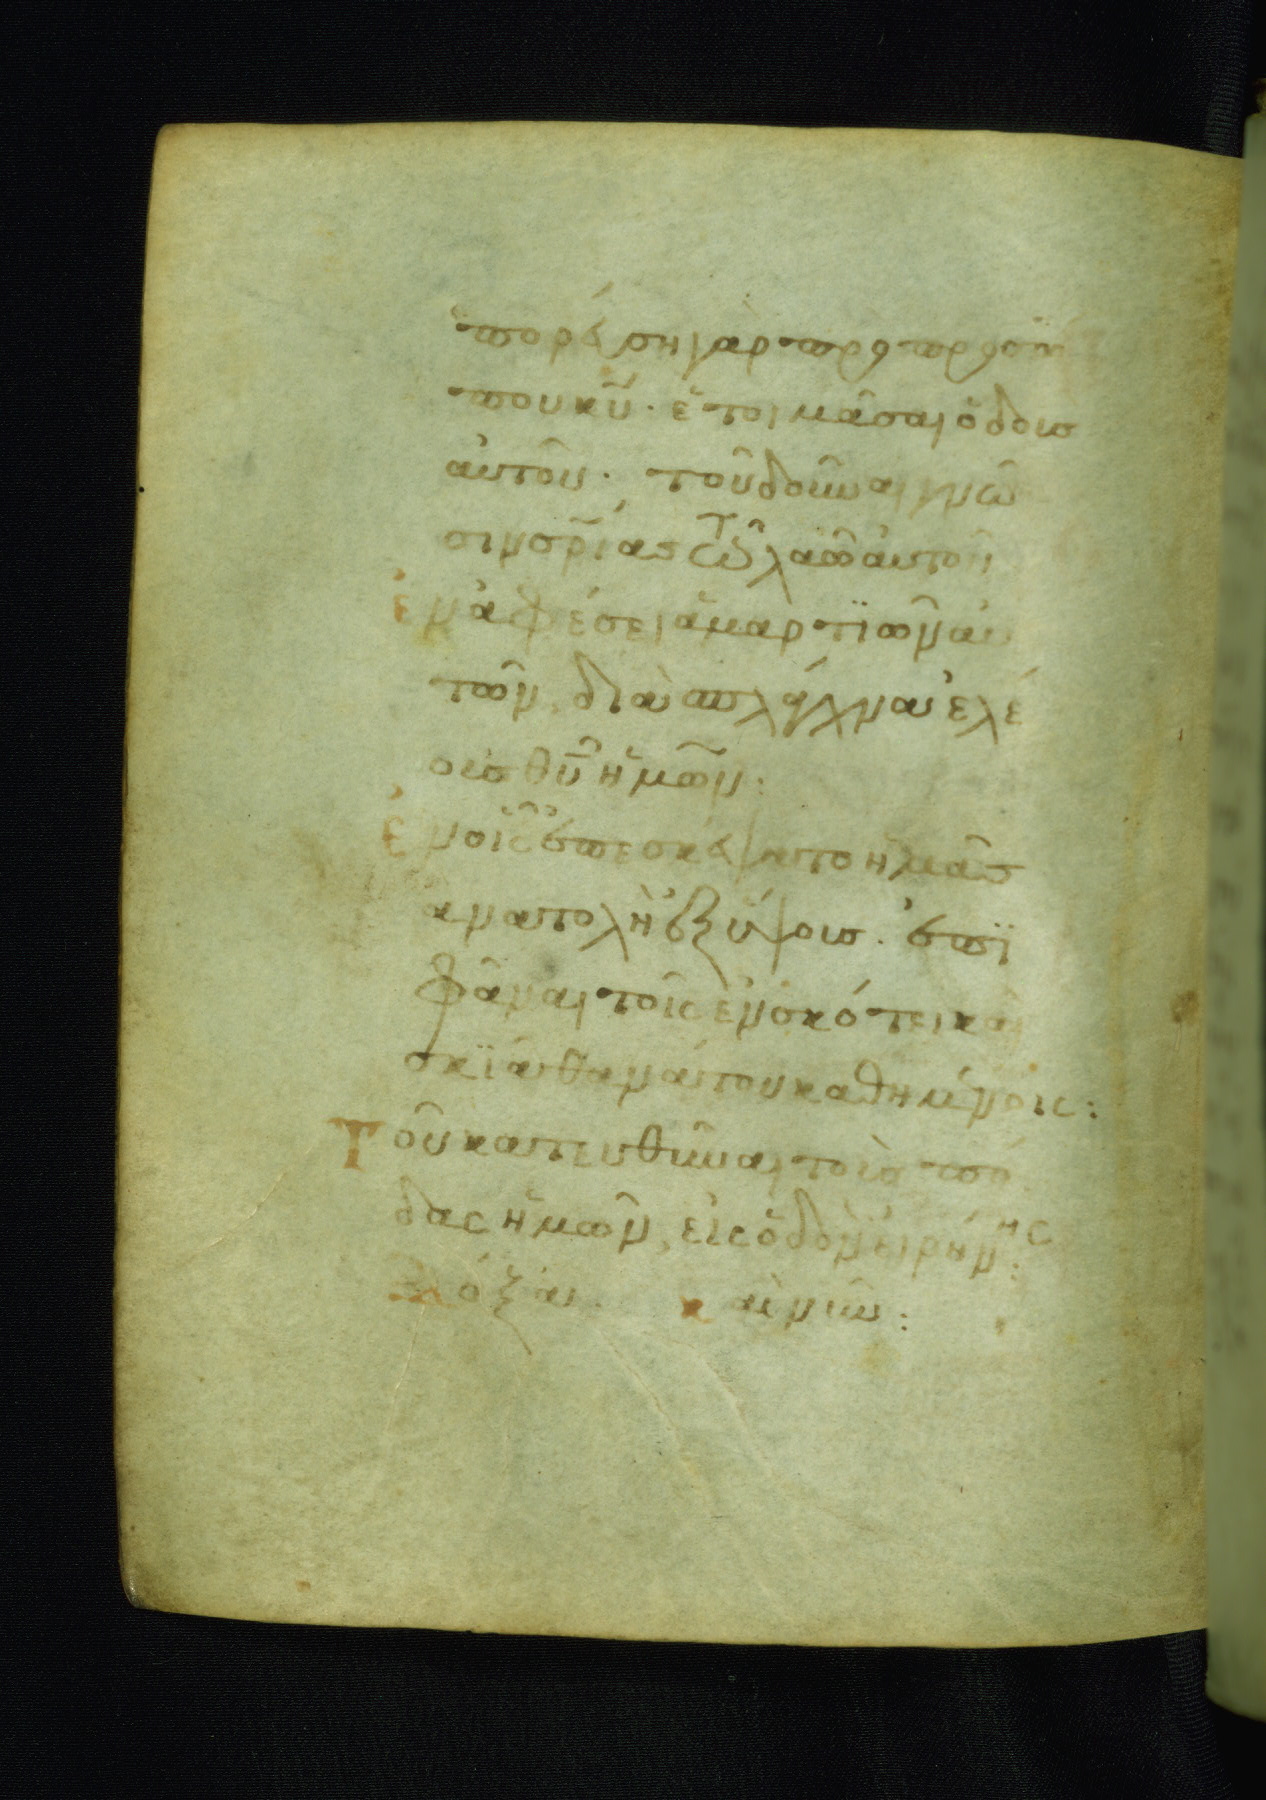 πορεύση γὰρ πρὸ προσώ
που κυ̅· ἑτοιμᾶσαι ὁδοὺς
αὐτοῦ· τοῦ δοῦναι γνῶ
σιν σρ̅ίας τῶ λαῶ αὐτοῦ
ἐν ἀφέσει ἁμαρτϊῶν αὐ
τῶν, διὰ σπλάγχνα ἐλέ
ους θυ̅ ἡμῶν·
ἐν οἷς ἐπεσκέψατο ἡμᾶς
ἀνατολὴ ἐξ ὕψους· ἐπϊ
φᾶναι τοῖς ἐν σκότει καὶ
σκϊᾶ θανάτου καθημένοις:
Τοῦ κατευθῦναι τοὺς πό
δας ἡμῶν, εἰς ὁδὸν εἰρήνης:
Δόξα. κ αὶ νῦν: